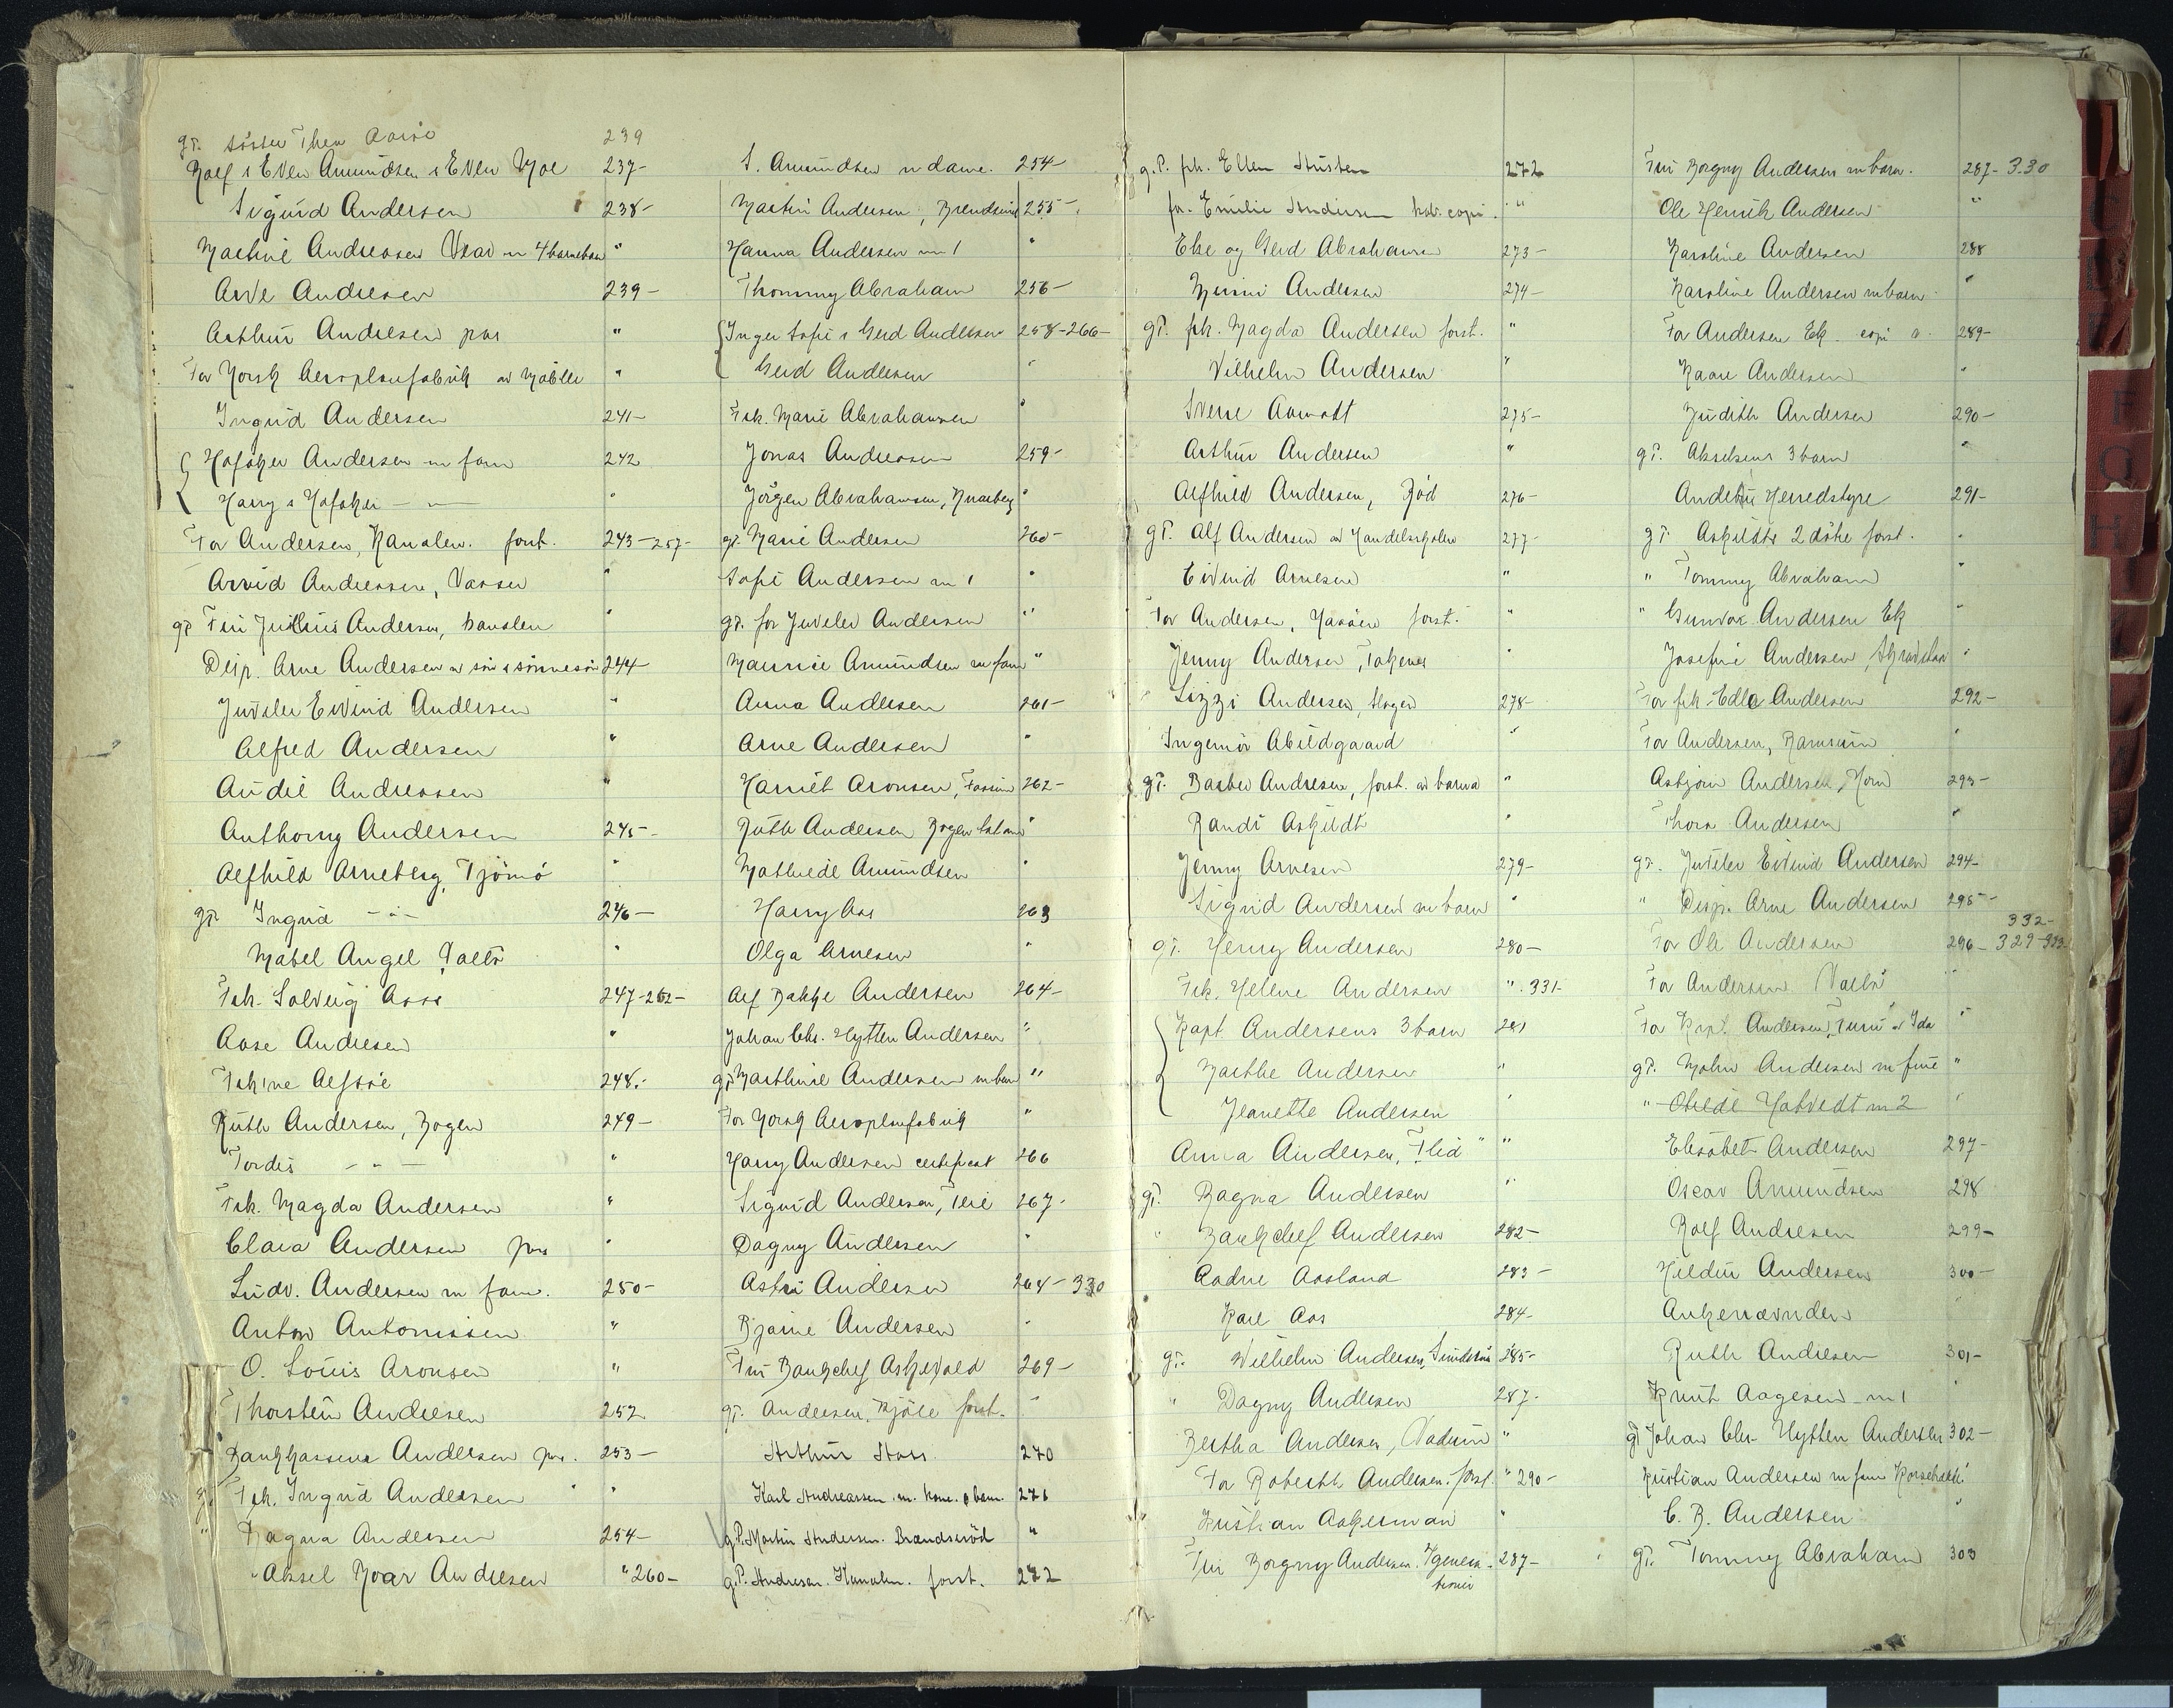 gt. söster Thea 239
Rolf s Even Amundsen s Even Moe 237-
Sigurd Andersen 238-
Andreasen m 4 barnebarn "
Andresen 239-
Arthur Andresen pas "
For Norsk Aeroplanfabrik av Möbler "
Ingrid Andersen 241-
Andersen m fam 242
Harry s - " - "
For Andersen, Kanalen. forst. 243-257-
Arvid Andreassen, Vasser "
gt Fru Julius Andersen, Kanalen "
Disp. Arne Andersen av sön s sönnesön 244-
Juveler Eivind Andersen "
Alfred Andersen "
Andreassen "
Anthony Andersen 245-
Alfhild Arneberg, Tjömö "
gt. Ingrid - " - 246-
Mabel Angel "
Frk. Solveig Aass 247-262-
Aase Andresen "
248-
Ruth Andersen, Bogen 249-
Tordis - " - "
Frk. Magda Andersen "
Clara Andersen pas "
Ludv. Andersen m fam. 250-
Anton Antonissen "
O. Louis Aronsen "
Thorstein Andresen 252
Bankkasserer Andersen pas. 253-
gt. Frk. Ingrid Andersen "
" Ragna Andersen 254-
" Aksel Roar Andresen " 260-
S. Amundsen m dame. 254-
Martin Andersen, 255-
Hanna Andersen m 1 "
Thommy Abraham 256-
Inger Sofie s Gerd Andersen 258-266-
Gerd Andersen "
Frk. Marie Abrahamsen "
Jonas Andreassen 259-
Jörgen Abrahamsen, "
gt. Marie Andersen 260-
Sofie Andersen m 1 "
gt. for Juveler Andersen "
Amundsen m fam "
Anna Andersen 261-
Arne Andersen "
Harriet Aronsen, 262-
Ruth Andersen Bogen "
Mathilde Amundsen "
Harry Aas 263
Olga Arnesen "
Alf Bakke Andersen 264-
Johan Chr. Hytten Andersen "
gt Marthine Andersen m barn "
For Norsk Aeroplanfabrik "
Harry Andersen certificat 266
Sigurd Andersen, Teie 267-
Dagny Andersen "
Astri Andersen 268-330
Bjarne Andersen "
Fru Bankchef Askevold 269-
gt. Andersen, Kjöle forst. "
Arthur Aass 270
Karl Andreassen m. kone. o barn. 271
g.t. Martin Andersen. Brændsröd "
g.t. Andresen. Kanalen. forst. 272
g.t. frk. Ellen 272
fr. Emilie Andersen kab. copi. "
Else og Gerd Abrahamsen 273-
Mimi Andersen 274-
gt. frk. Magda Andersen forst. "
Vilhelm Andersen "
Sverre Aamodt 275-
Arthur Andersen "
Alfhild Andersen, Röd 276-
gt. Alf Andersen av Handelsskolen 277-
Eivind Arnesen "
For Andersen, forst. "
Jenny Andersen, "
Lizzi Andersen, 278-
Ingemor Abildgaard "
gt. Barber Andresen, forst. av barna "
Randi Askildt "
Jenny Arnesen 279-
Sigrid Andersen m barn "
gt. Henry Andersen 280-
Frk. Helene Andersen ". 331-
Kapt. Andersens 3 barn 281
Marthe Andersen "
Jeanette Andersen "
Anna Andersen, "
gt. Ragna Andersen "
" Bankchef Andersen 282-
Aadne Aasland 283-
Kare Aas 284-
gt. Wilhelm Andersen, 285-
" Dagny Andersen 287-
Bertha Andersen, "
For Roberth Andersen. forst. " 290-
Kristian Ackerman "
Fru Borgny Andersen. 287-
Fru Borgny Andersen m barn. 287-330
Ole Henrik Andersen "
Karoline Andersen 288
Karoline Andersen m barn "
For Andersen Ek. copi 289-
Kaare Andersen "
Judith Andersen 290-
gt. Akselsens 3 barn "
Andebu Herredstyre 291-
gt. Askildts 2 döttre forst. "
" Tommy Abraham "
" Gunvor Andersen Ek "
Josefine Andersen, "
For frk. Edle Andersen 292-
For Andersen, "
Asbjörn Andersen, 293-
Thora Andersen "
gt. Juveler Eivind Andersen 294-
" Disp. Arne Andersen 295-
332-
For Ole Andersen 296-329-333-
For Andersen "
For Kapt. Andersen, av Ida "
gt. Andersen m frue "
" m 2 "
Elisabeth Andersen 297-
Oscar Amundsen 298
Rolf Andresen 299-
Hildur Andersen 300-
"
Ruth Andresen 301-
Knut Aagesen m 1 "
gt Johan Chr. Hytten Andersen 302-
Kristian Andersen m fam
C. B. Andersen "
gt. Tommy Abraham 303
F
G
H